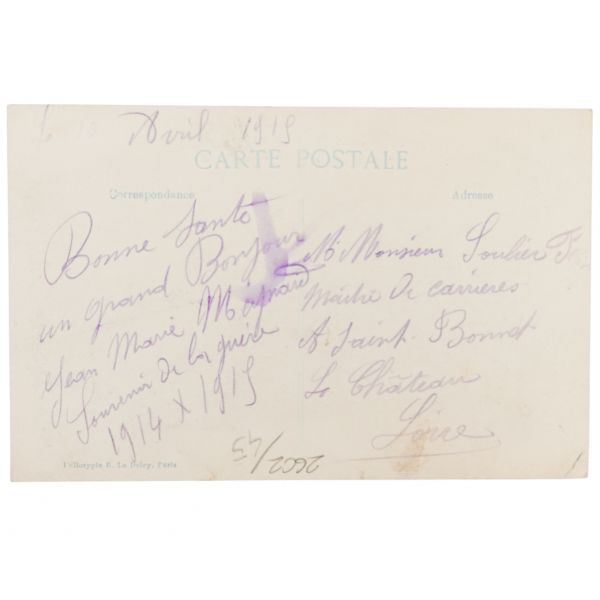 Le 10 Avril 1915
CARTE POSTALE
Correspondance
Adresse
Bonne Santé
un grand Bonjour
Jean Marie
Souvenir de la guère
1914 X 1915
Mr Monsieur Soulier
Maître De carrières
A Saint Bonnet
Le Château
Loire
2602/45
E. Le Deley, Paris